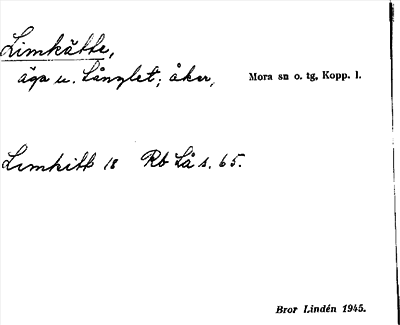 Limkätte,
äga u. Långlet; åker, Mora sn o. tg, Kopp. l.
Limkitt 18 Rb Lå s. 65.
Bror Lindén 1945.